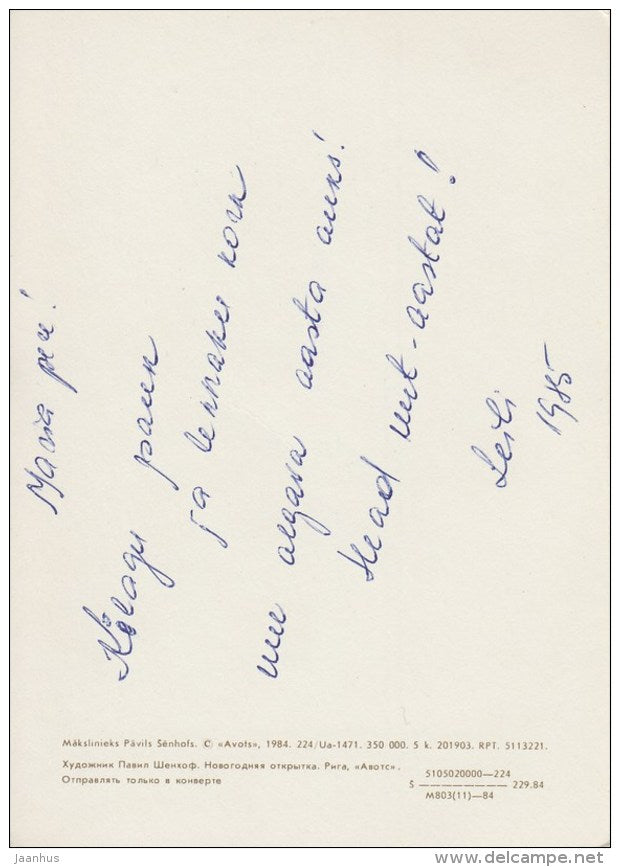 Maria pere!
Kõlagu pauk
ja lennaku kork
uue algava aasta auks!
Head uut-aastat!
Leili
1985
Mākslinieks Pāvils Šēnhofs. © «Avots», 1984. 224/Ua-1471. 350 000. 5 k. 201903. RPT. 5113221.
Художник Павил Шенхоф. Новогодняя открытка. Рига, «Авотс».
Отправлять только в конверте
S 5105020000—224
M803(11)—84 229.84
jaanhus
delcampe.net